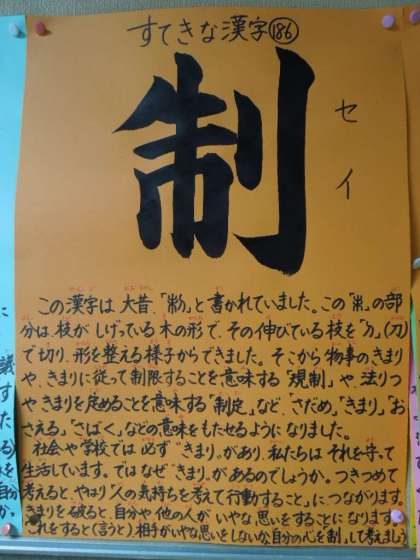 すてきな漢字186
制
セイ
この漢字は大昔、「㓡」と書かれていました。この「朱」の部
分は、枝がしげっている木の形で、その伸びている枝を「刀」(刀)
で切り、形を整える様子からできました。そこから物事のきまり
や、きまりに従って制限することを意味する「規制」や、法りつ
やきまりを定めることを意味する「制定」など、「さだめ」「きまり」「お
さえる」「さばく」などの意味をもたせるようになりました。
社会や学校では必ず“きまり”があり、私たちはそれを守って
生活しています。ではなぜ“きまり”があるのでしょうか。つきつめて
考えると、やはり「人の気持ちを考えて行動すること」につながります。
きまりを破ると、自分や他の人がいやな思いをすることになります。
これをすると(言うと)、相手がいやな思いをしないかな自分の心を制して考えましょう
に
議
すた
る